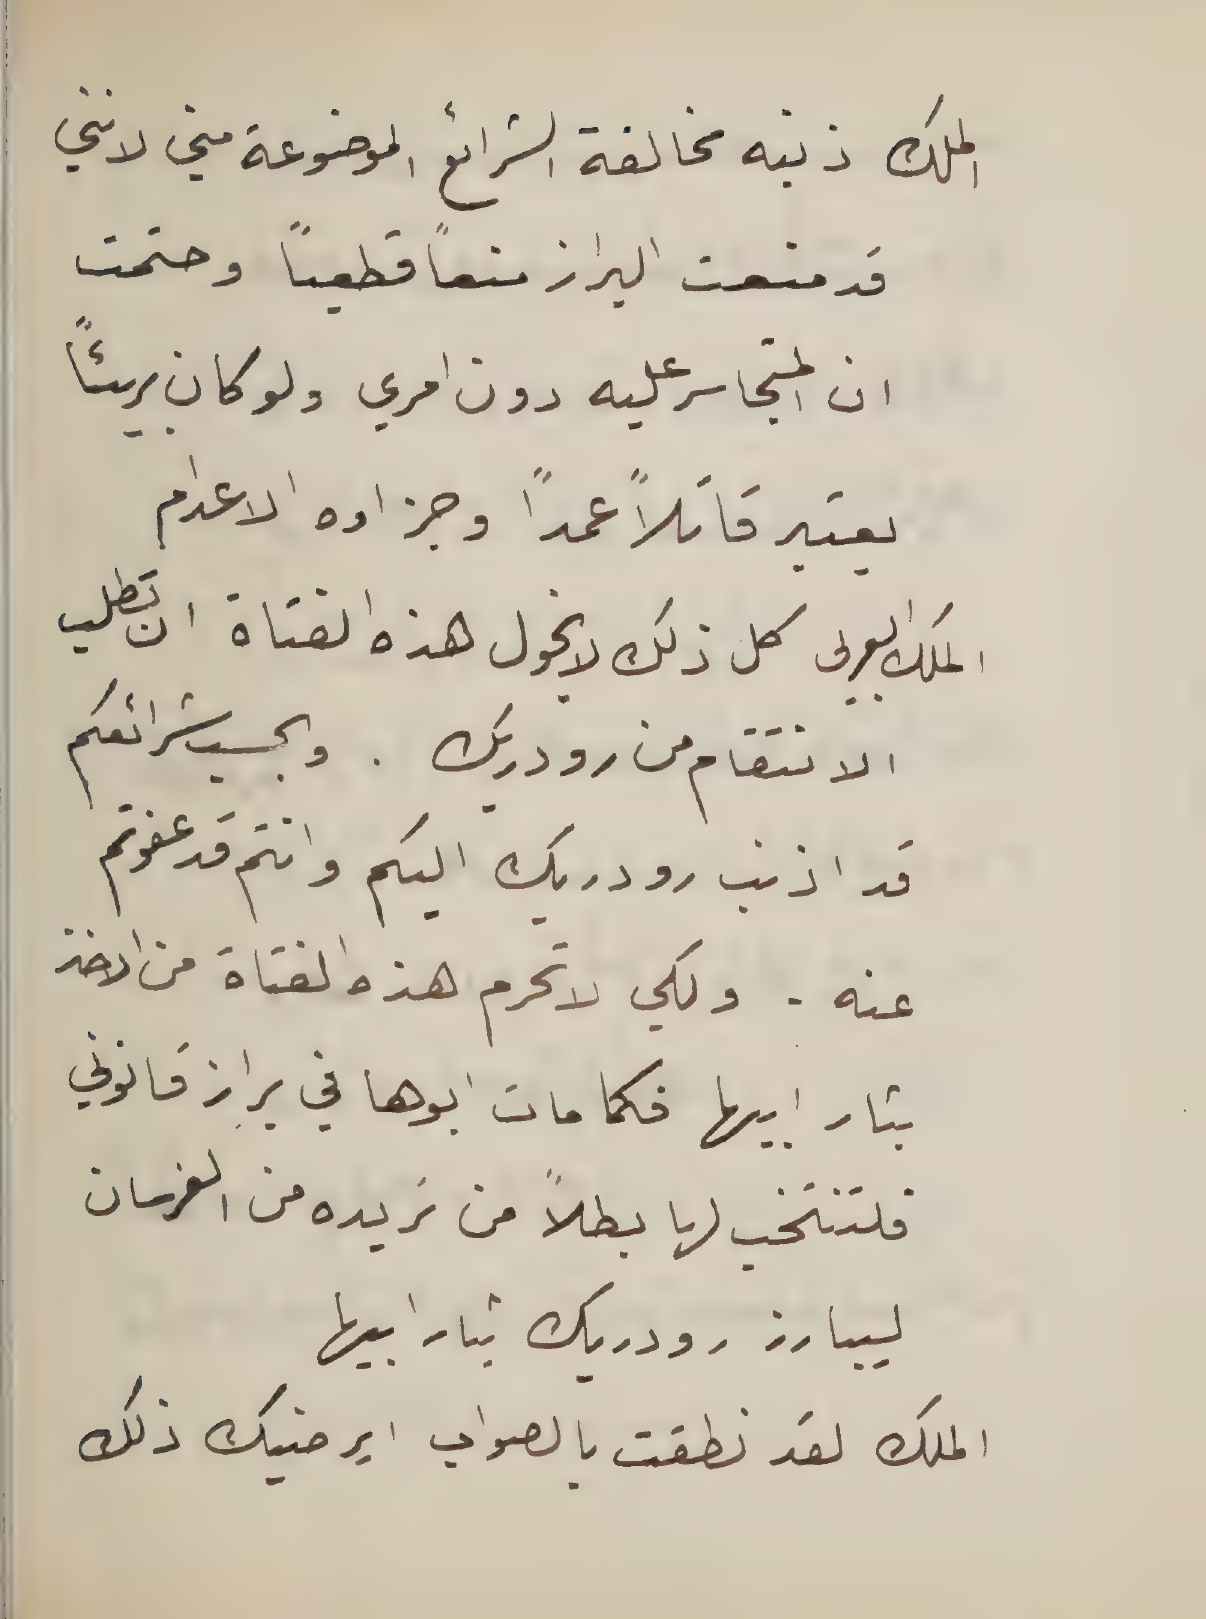 الملك ذنبه مخالفة الشرائع الموضوعة مني لانني
قد منعت البراز منعاً قطعياً وحتمت
ان المتجاسر عليه دون امري ولو كان بريئاً
يعتبر قاتلاً عمداً وجزاوه الاعدام
الملك العربي كل ذلك لا يخول هذه الفتاة ان تطلب
الانتقام من رودريك . وبحسب شرائعكم
قد اذنب رودريك اليكم وانتم قد عفوتم
عنه - ولكي لا تحرم هذه الفتاة من الاخذ
بثار ابيها فكما مات ابوها في براز قانوني
فلتنتخب لها بطلاً من تريده من الفرسان
ليبارز رودريك بثار ابيها
الملك لقد نطقت بالصواب ايرضيك ذلك